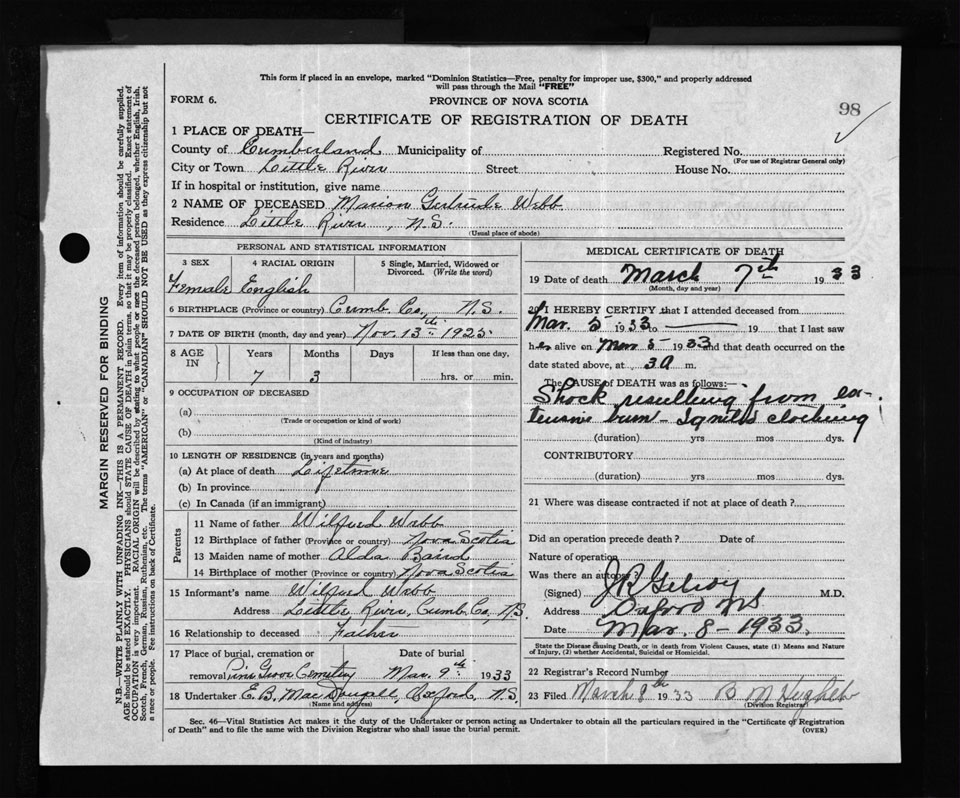 This form if placed in an envelope, marked "Dominion Statistics—Free, penalty for improper use, $300," and properly addressed
will pass through the Mail "FREE"
FORM 6.
PROVINCE OF NOVA SCOTIA
98
CERTIFICATE OF REGISTRATION OF DEATH
1 PLACE OF DEATH—
County of Cumberland Municipality of Registered No.
(For use of Registrar General only)
City or Town Little River Street House No.
If in hospital or institution, give name
2 NAME OF DECEASED Marion Gertrude Webb
Residence Little River, N.S.
(Usual place of abode)
PERSONAL AND STATISTICAL INFORMATION
3 SEX 4 RACIAL ORIGIN 5 Single, Married, Widowed or
Divorced. (Write the word)
Female English
6 BIRTHPLACE (Province or country) Cumb. Co., N.S.
7 DATE OF BIRTH (month, day and year) Nov. 13th 1925
8 AGE IN Years Months Days If less than one day,
7 3 hrs. or min.
9 OCCUPATION OF DECEASED
(a)
(Trade or occupation or kind of work)
(b)
(Kind of industry)
10 LENGTH OF RESIDENCE (in years and months)
(a) At place of death Lifetime
(b) In province
(c) In Canada (if an immigrant)
Parents
11 Name of father Wilfred Webb
12 Birthplace of father (Province or country) Nova Scotia
13 Maiden name of mother Alda Baird
14 Birthplace of mother (Province or country) Nova Scotia
15 Informant's name Wilfred Webb
Address Little River, Cumb. Co., N.S.
16 Relationship to deceased Father
17 Place of burial, cremation or Date of burial
removal Pine Grove Cemetery Mar. 9th 1933
18 Undertaker E.B. MacDougall, Oxford, N.S.
(Name and address)
MEDICAL CERTIFICATE OF DEATH
19 Date of death March 7th 1933
(Month, day and year)
20 I HEREBY CERTIFY that I attended deceased from
Mar. 5 1933 to — 19 that I last saw
her alive on Mar 5- 1933 and that death occurred on the
date stated above, at 3 a m.
The CAUSE of DEATH was as follows:
Shock resulting from ex-
tensive burn - Ignited clothing
(duration) yrs mos dys.
CONTRIBUTORY
(duration) yrs mos dys.
21 Where was disease contracted if not at place of death?
Did an operation precede death? Date of
Nature of operation
Was there an autopsy?
(Signed) J.R. Gilroy M.D.
Address Oxford NS
Date Mar. 8 - 1933.
State the Disease causing Death, or in death from Violent Causes, state (1) Means and
Nature of Injury, (2) whether Accidental, Suicidal or Homicidal.
22 Registrar's Record Number
23 Filed March 8th 1933 B M Hughes
(Division Registrar)
Sec. 46—Vital Statistics Act makes it the duty of the Undertaker or person acting as Undertaker to obtain all the particulars required in the "Certificate of Registration
of Death" and to file the same with the Division Registrar who shall issue the burial permit.
(OVER)
MARGIN RESERVED FOR BINDING
N.B.—WRITE PLAINLY WITH UNFADING INK—THIS IS A PERMANENT RECORD. Every item of information should be carefully supplied.
AGE should be stated EXACTLY. PHYSICIANS should STATE CAUSE OF DEATH in plain terms, so that it may be properly classified. Exact statement of
OCCUPATION is very important. RACIAL ORIGIN will be described by stating to what people or race the deceased person belonged, whether English, Irish,
Scotch, French, German, Russian, Ruthenian, etc. The terms "AMERICAN" or "CANADIAN" SHOULD NOT BE USED as they express citizenship but not
a race or people. See instructions on back of Certificate.